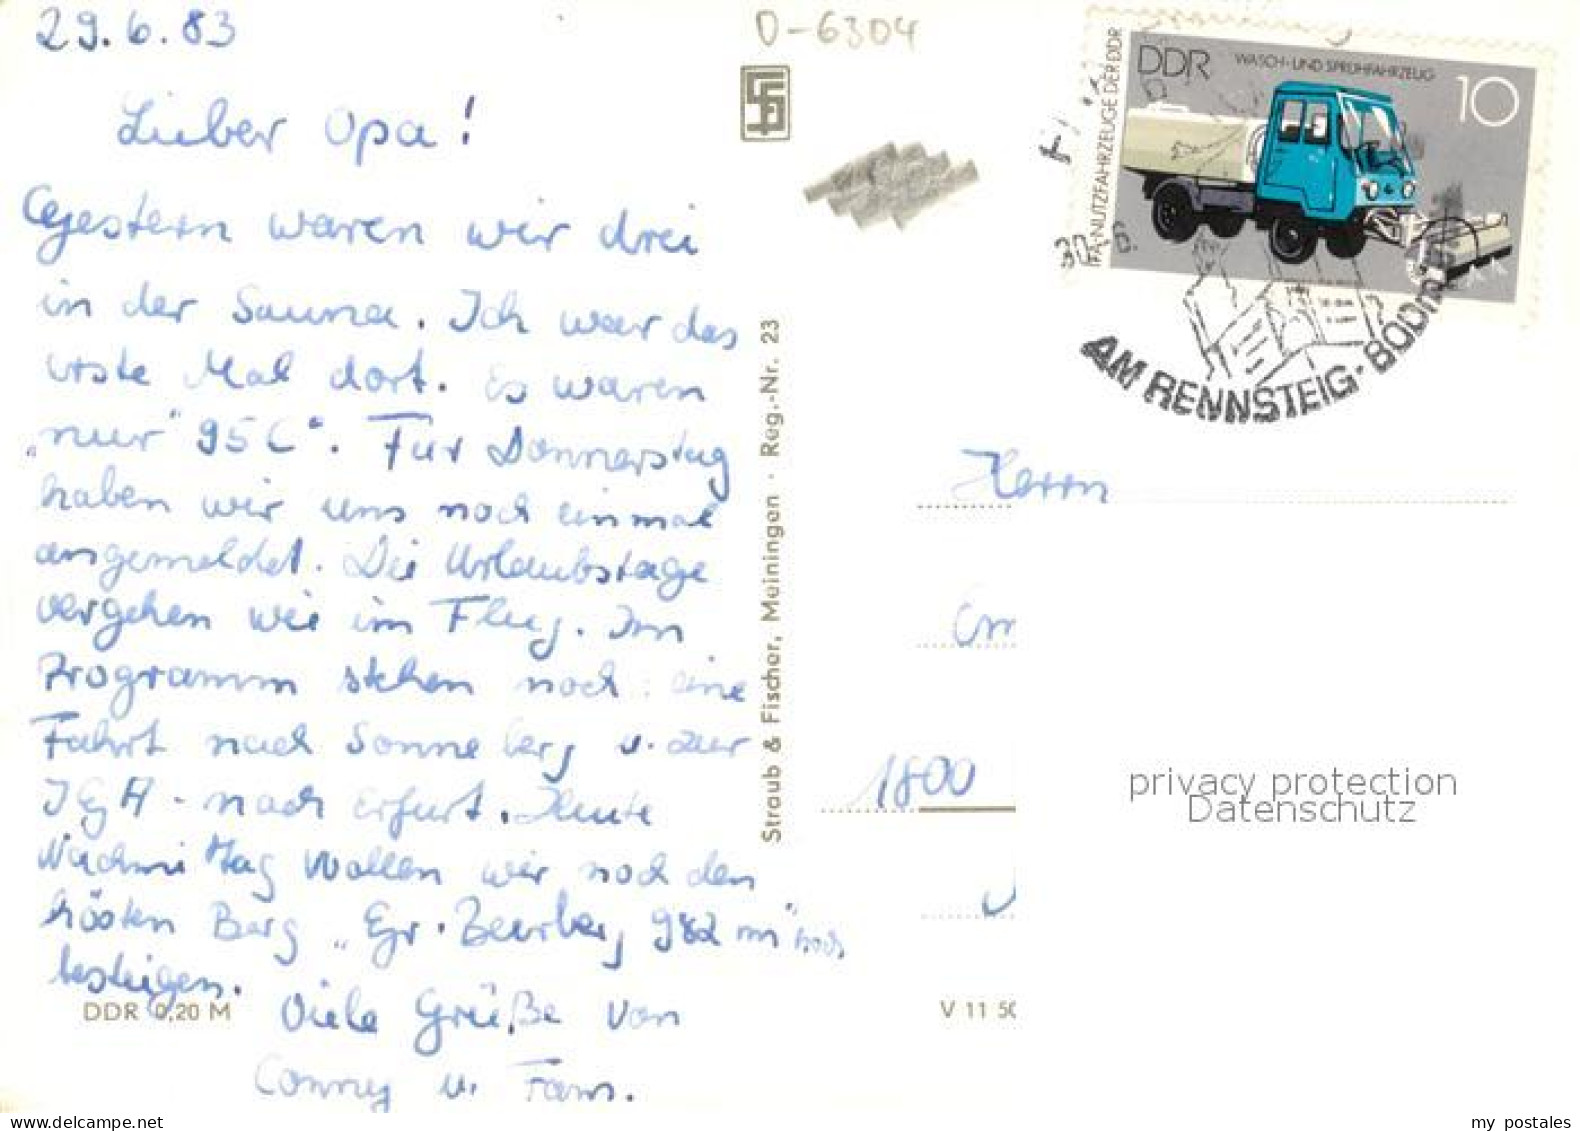 29.6.83
D-6304
Lieber Opa!
Gestern waren wir drei
in der Sauna. Ich war das
erste Mal dort. Es waren
"nur" 95 C°. Für Donnerstag
haben wir uns noch einmal
angemeldet. Die Urlaubstage
vergehen wie im Flug. Im
Programm stehen noch eine
Fahrt nach Sonneberg u. zur
IGA - nach Erfurt. Heute
Nachmittag wollen wir noch den
hösten Berg "Gr. Beerberg 982 m" noch
besteigen.
Viele Grüße von
Conny u. Fam.
DDR 0,20 M
V 11 50
Straub & Fischer, Meiningen · Reg.-Nr. 23
DDR
WASCH- UND SPRÜHFAHRZEUG
10
IFA-NUTZFAHRZEUGE DER DDR
30.6.
AM RENNSTEIG-600
Herrn
1800
privacy protection
Datenschutz
www.delcampe.net
my postales